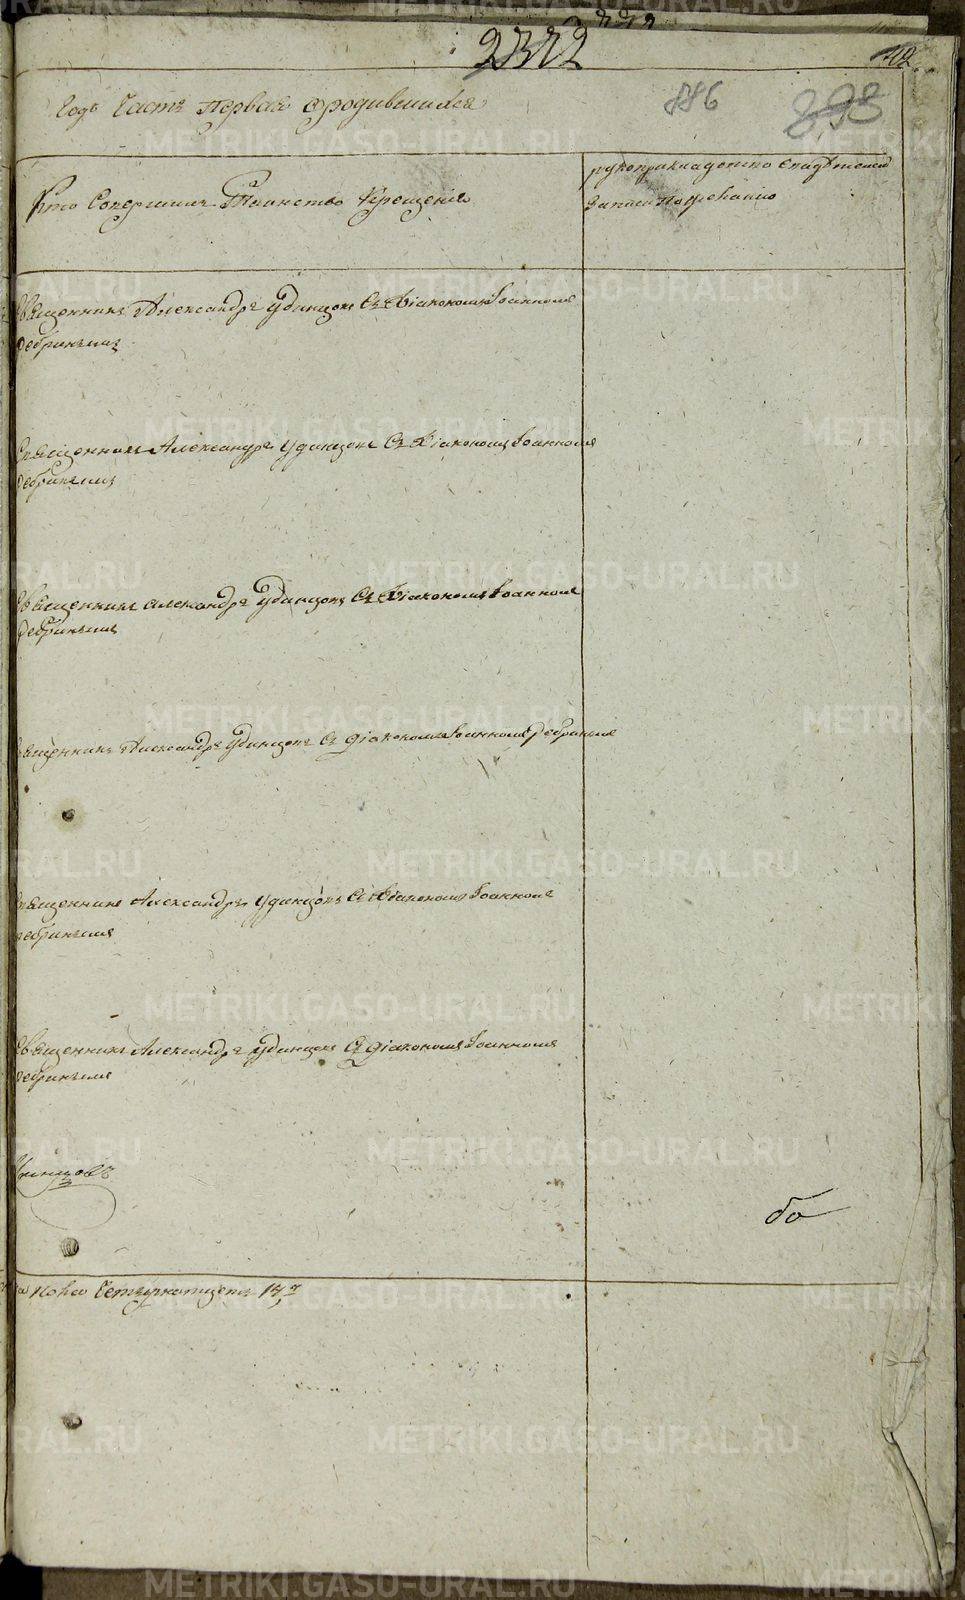 2372
412
886
898
Годъ Часть первая о родившихся
Кто Совершилъ Таинство Крещенія
рукоприкладство Свидѣтелей
записи по желанію
Священникъ Александръ Удинцовъ Съ Діакономъ Іоанномъ
Ребринымъ
Священникъ Александръ Удинцовъ Съ Діакономъ Іоанномъ
Ребринымъ
Священникъ Александръ Удинцовъ Съ Діакономъ Іоанномъ
Ребринымъ
Священникъ Александръ Удинцовъ Съ діакономъ Іоанномъ Ребринымъ
Священникъ Александръ Удинцовъ Съ Діакономъ Іоанномъ
Ребринымъ
Священникъ Александръ Удинцовъ Съ діакономъ Іоанномъ
Ребринымъ
бо
METRIKI.GASO-URAL.RU